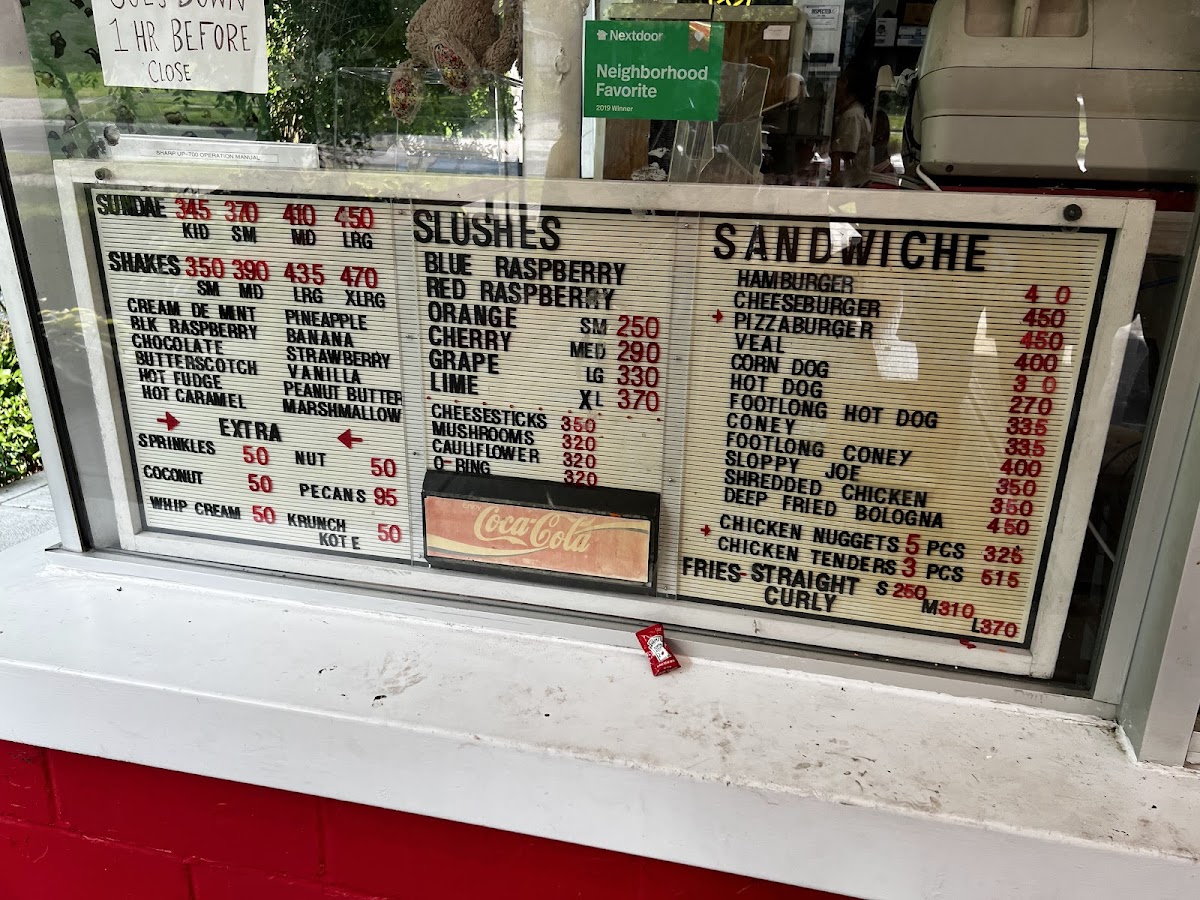 GOES DOWN
1 HR BEFORE
CLOSE
Nextdoor
Neighborhood
Favorite
2019 Winner
SHARP UP-700 OPERATION MANUAL
SUNDAE 345 370 410 450
KID SM MD LRG
SHAKES 350 390 435 470
SM MD LRG XLRG
CREAM DE MINT PINEAPPLE
BLK RASPBERRY BANANA
CHOCOLATE STRAWBERRY
BUTTERSCOTCH VANILLA
HOT FUDGE PEANUT BUTTER
HOT CARAMEL MARSHMALLOW
EXTRA
SPRINKLES 50 NUT 50
COCONUT 50 PECANS 95
WHIP CREAM 50 KRUNCH 50
KOTE
SLUSHES
BLUE RASPBERRY
RED RASPBERRY
ORANGE SM 250
CHERRY MED 290
GRAPE LG 330
LIME XL 370
CHEESESTICKS 350
MUSHROOMS 320
CAULIFLOWER 320
O-RING 320
Enjoy
Coca-Cola
SANDWICHE
HAMBURGER 4 0
CHEESEBURGER 450
PIZZABURGER 450
VEAL 400
CORN DOG 3 0
HOT DOG 270
FOOTLONG HOT DOG 335
CONEY 335
FOOTLONG CONEY 400
SLOPPY JOE 350
SHREDDED CHICKEN 350
DEEP FRIED BOLOGNA 450
CHICKEN NUGGETS 5 PCS 325
CHICKEN TENDERS 3 PCS 515
FRIES-STRAIGHT S 250
CURLY M310
L370